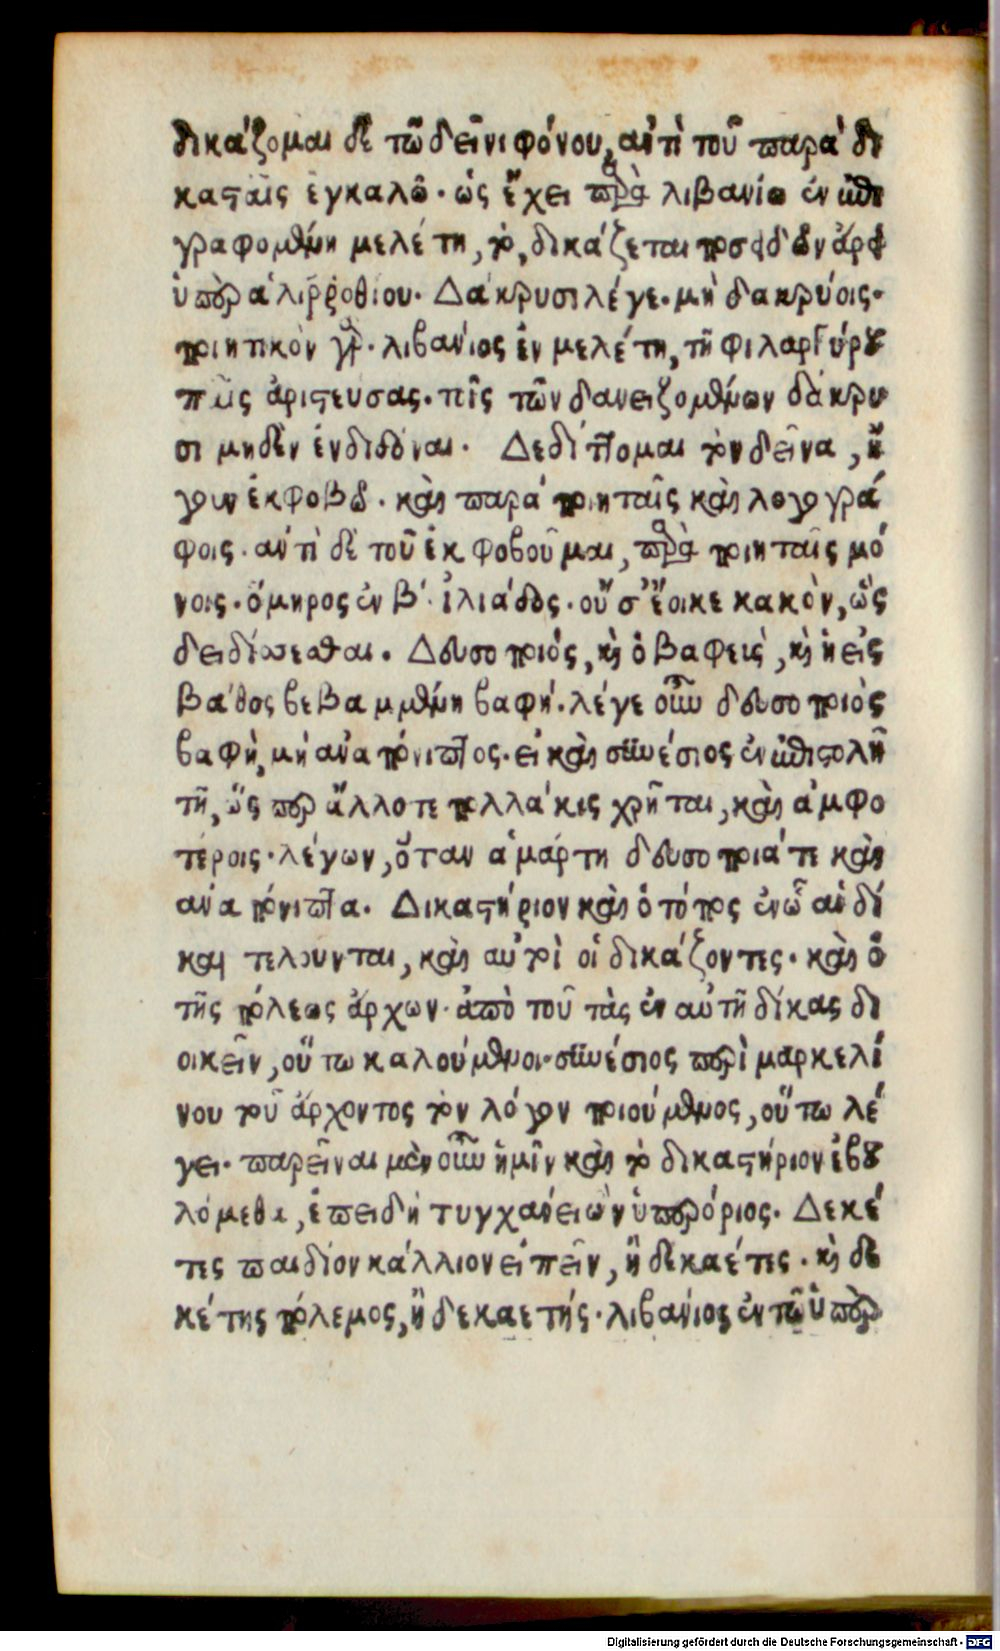 δικάζομαι δὲ τῷ δεῖνι φόνου, ἀντὶ τοῦ παρὰ δι
κασταῖς ἐγκαλῶ. ὡς ἔχει παρὰ λιβανίω ἐν ἐπι
γραφομένη μελέτη, τὸ, δικάζεται ποσειδῶν ἄρει
ὑπὲρ ἁλιῤῥοθίου. Δάκρυσι λέγε. μὴ δακρύοις.
ποιητικὸν γάρ. λιβανίος ἐν μελέτη, τῆ φιλαργύρου
τὶς ἀριστευσας. τῖς τῶν δανειζομένων δάκρυ
σι μηδὲν ἐνδιδόναι. Δεδίττομαι τὸν δεῖνα, ἤ
γουν ἐκφοβῶ. καὶ παρὰ ποιηταῖς καὶ λογογρά
φοις. ἀντὶ δὲ τοῦ ἐκφοβοῦμαι, παρὰ ποιηταῖς μό
νοις. ὅμηρος ἐν β. ἰλιάδος. οὔ σ' ἔοικε κακὸν, ὣς
δειδίσσεσθαι. Δευσοποιός, καὶ ὁ βαφεὺς, καὶ ἡ εἰς
βάθος βεβαμμένη βαφή. λέγε οὖν δευσοποιὸς
βαφὴ, μὴ ἀναπόνιπτος. εἰ καὶ συνέσιος ἐν ἐπιστολῆ
τῆ, ὥς περ ἄλλοτε πολλάκις χρῆται, καὶ ἀμφο
τέροις. λέγων, ὅταν ἁμάρτη δευσοποιά τε καὶ
ἀναπόνιπτα. Δικαστήριον καὶ ὁ τόπος ἐν ᾧ αἱ δί
και τελοῦνται, καὶ αὐτοὶ οἱ δικάζοντες. καὶ ὁ
τῆς πόλεως ἄρχων. ἀπὸ τοῦ τὰς ἐν αὐτῆ δίκας δι
οικεῖν, οὕτω καλούμενοι. συνέσιος περὶ μαρκελί
νου τοῦ ἄρχοντος τὸν λόγον ποιούμενος, οὕτω λέ
γει. παρεῖναι μὲν οὖν ἡμῖν καὶ τὸ δικαστήριον ἐβου
λόμεθα, ἐπειδὴ τυγχάνει ὢν ὑπερόριος. Δεκέ
τες παιδίον κάλλιον εἰπεῖν, ἢ δεκαέτες. καὶ δε
κέτης πόλεμος, ἢ δεκαετής. λιβανίος ἐν τῷ ὑπὲρ
Digitalisierung gefördert durch die Deutsche Forschungsgemeinschaft - DFG